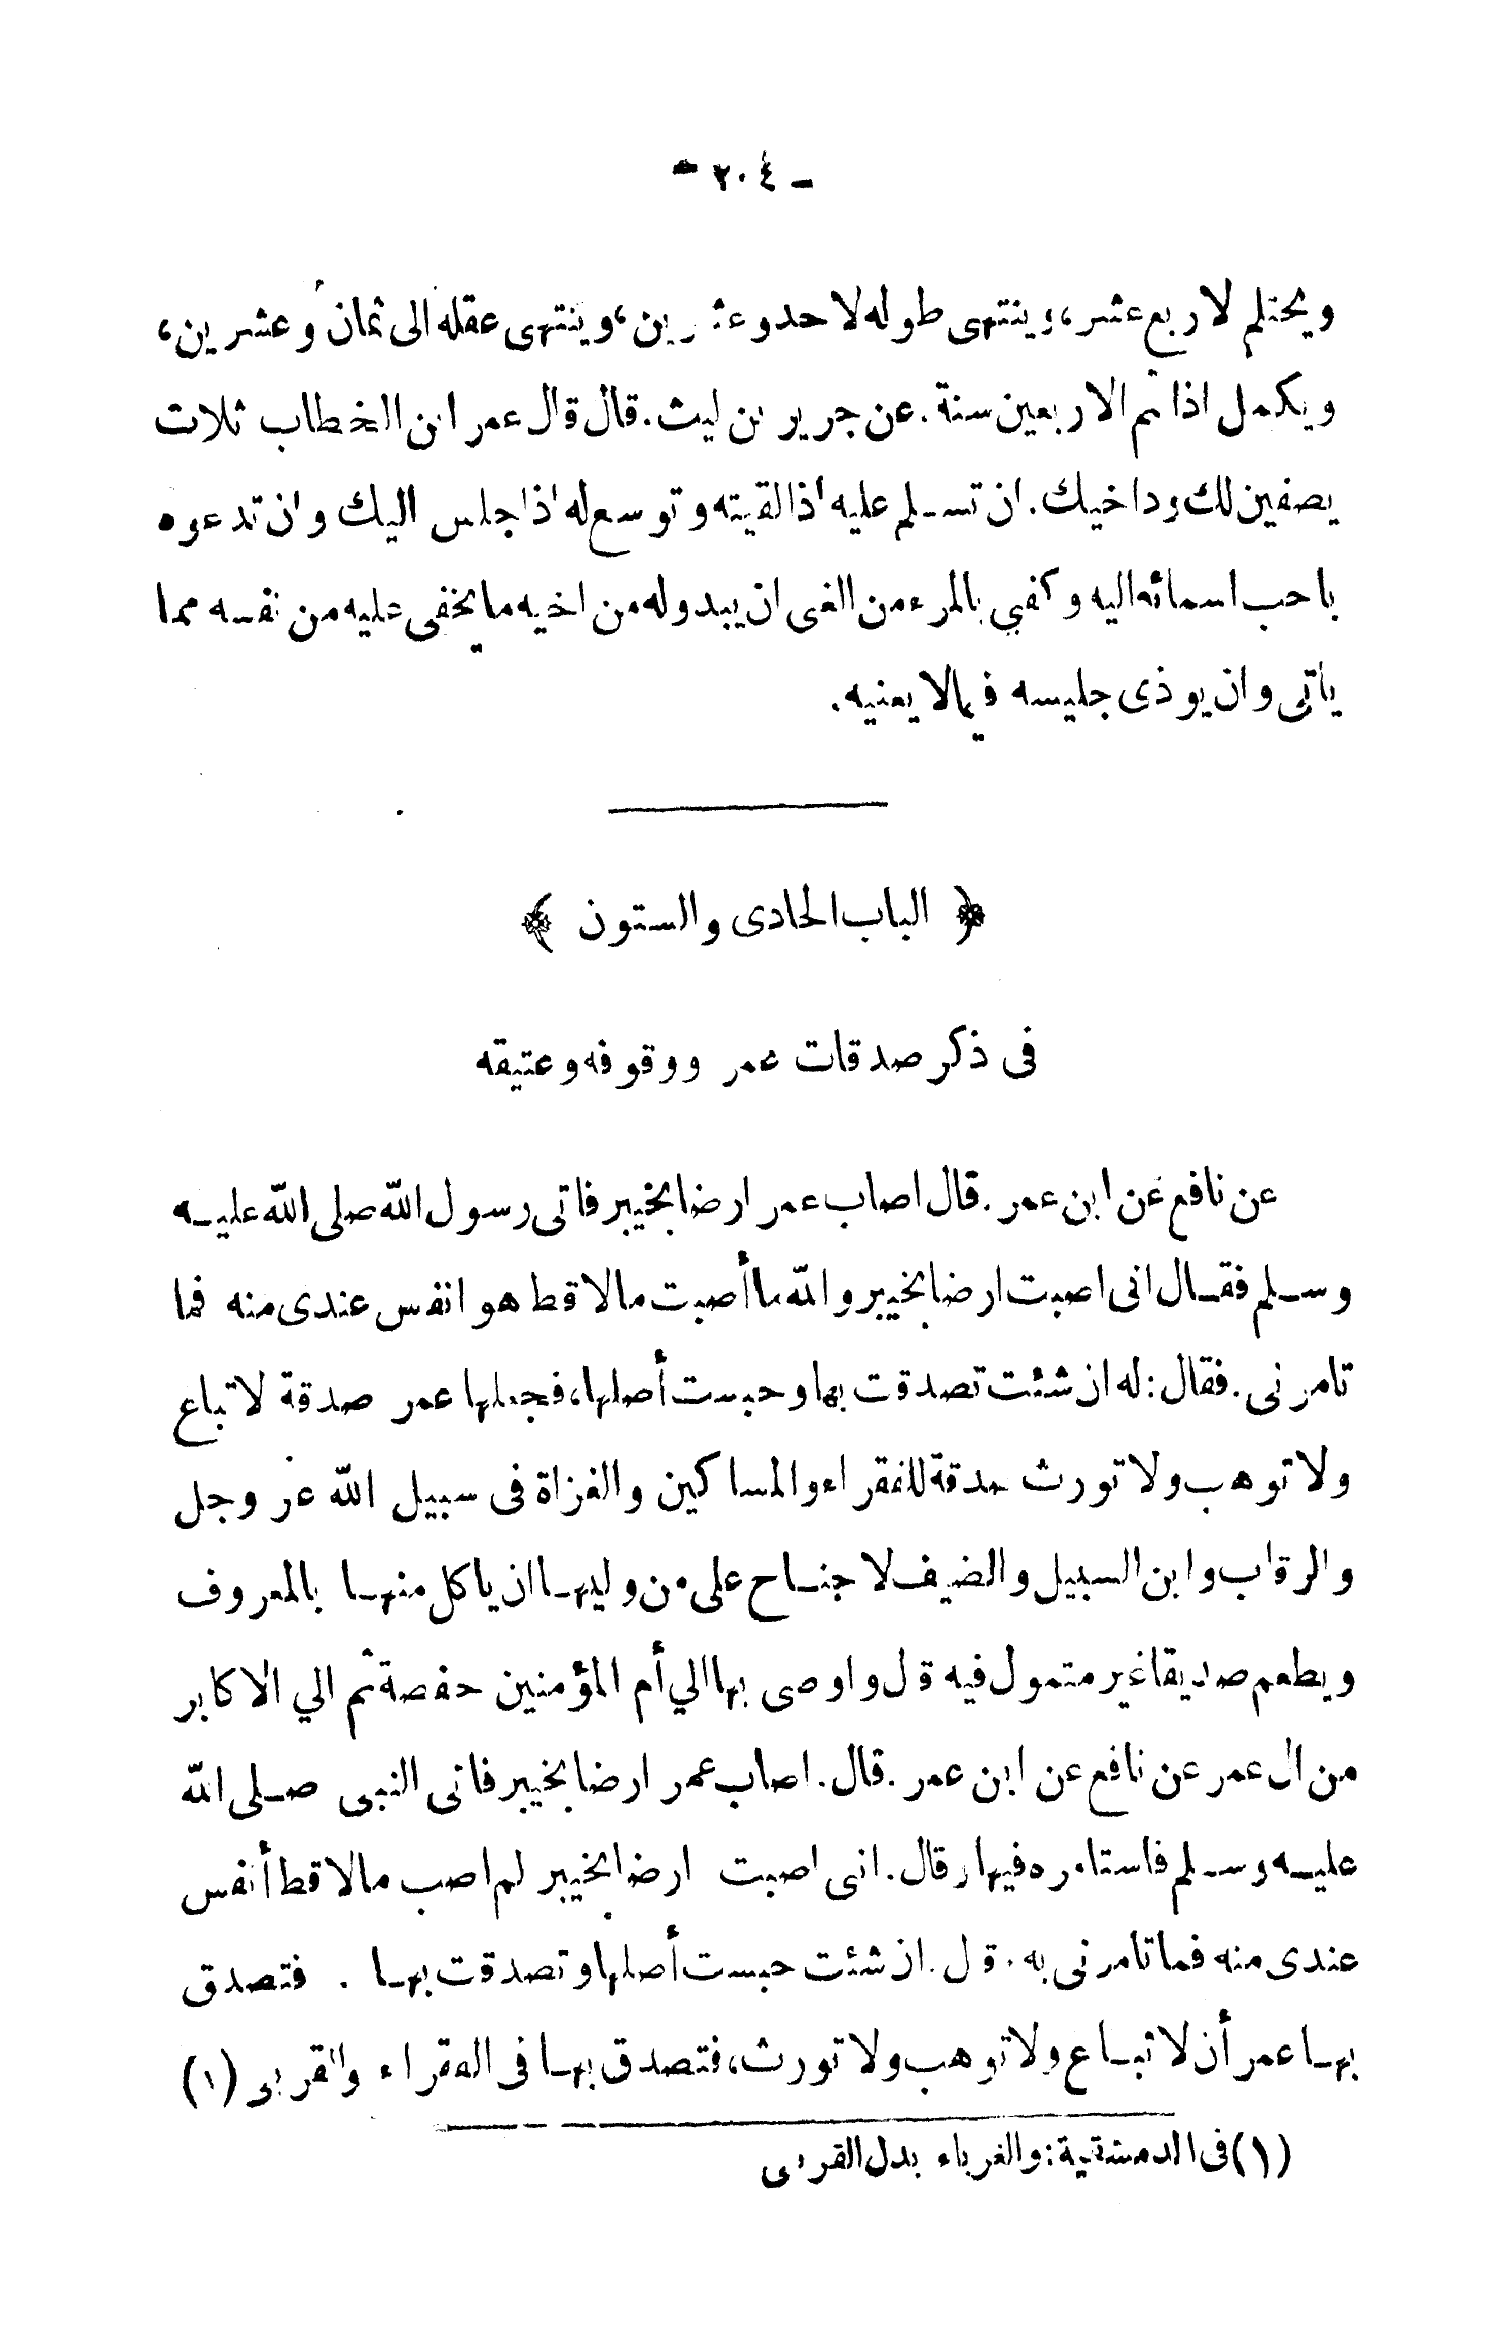 - ٢٠٤ -
ويحتلم لاربع عشر، وينتهى طوله لاحد وعشرين، وينتهى عقله الى ثمان وعشرين،
ويكمل اذا تم الاربعين سنة. عن جرير بن ليث. قال قال عمر ابن الخطاب ثلاث
يصفين لك وداخيك. ان تسلم عليه اذا لقيته وتوسع له اذا جلس اليك وان تدعوه
باحب اسمائه اليه وكفي بالمرء من الغى ان يبدو له من اخيه ما يخفى عليه من نفسه مما
ياتى وان يوذى جليسه فيما لا يعنيه.
﴿ الباب الحادى والستون ﴾
فى ذكر صدقات عمر ووقوفه وعتيقه
عن نافع عن ابن عمر. قال اصاب عمر ارضا بخيبر فاتى رسول الله صلى الله عليه
وسلم فقال انى اصبت ارضا بخيبر والله ما أصبت مالا قط هو انفس عندى منه فما
تامرنى. فقال: له ان شئت تصدقت بها وحبست أصلها، فجعلها عمر صدقة لا تباع
ولا توهب ولا تورث صدقة للفقراء والمساكين والغزاة فى سبيل الله عز وجل
والرقاب وابن السبيل والضيف لا جناح على من وليها ان ياكل منها بالمعروف
ويطعم صديقا غير متمول فيه قال واوصى بها الي أم المؤمنين حفصة ثم الي الاكابر
من ال عمر عن نافع عن ابن عمر. قال. اصاب عمر ارضا بخيبر فاتى النبى صلى الله
عليه وسلم فاستامره فيها وقال. انى اصبت ارضا بخيبر لم اصب مالا قط أنفس
عندى منه فما تامرنى به. قال. ان شئت حبست أصلها وتصدقت بها. فتصدق
بها عمر أن لا تباع ولا توهب ولا تورث، فتصدق بها فى الفقراء والقربى (١)
(١) فى الدمشقية: والغرباء بدل القربى